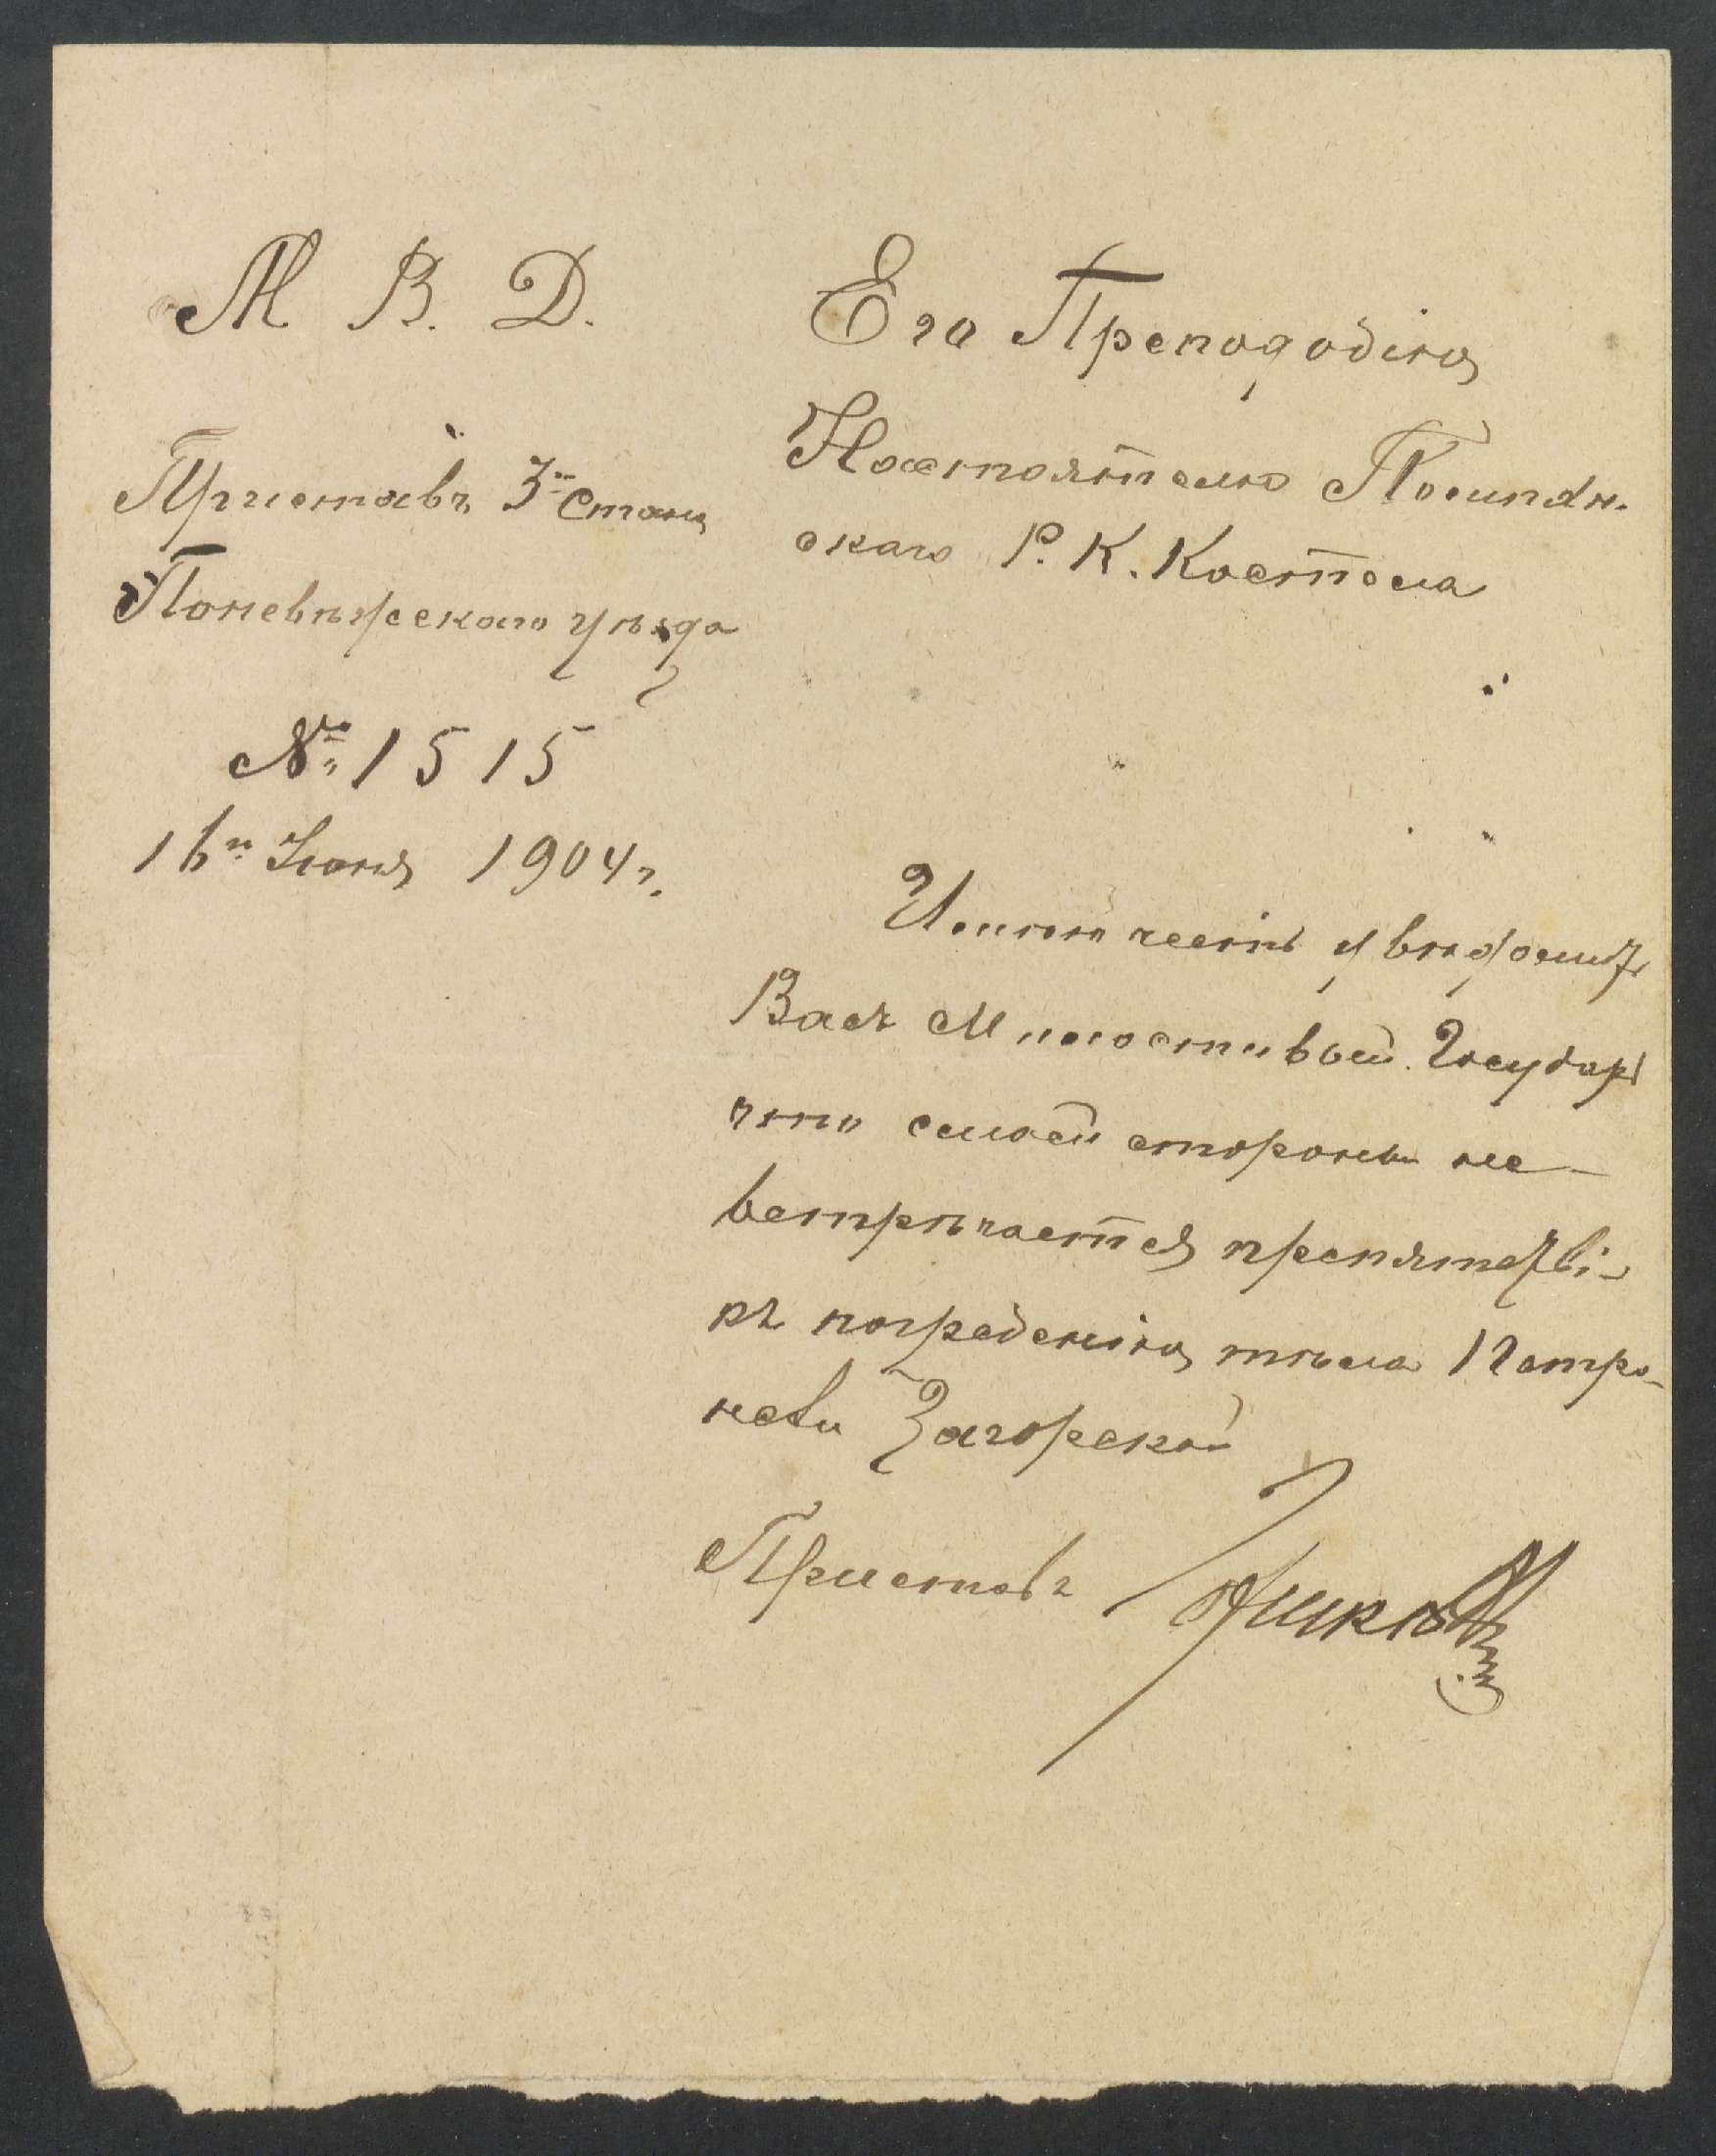 М В. Д.
Приставъ 3го Стана
Поневѣжскаго уѣзда
№ 1515
16го Іюня 1904 г.
Его Преподобію
Настоятелю
скаго Р. К. Костела
Имею честь увѣдомить
Васъ Милостивый Государь
что съ моей стороны не
встрѣчается препятствія
къ погребенію тѣла Петро-
нели Загорской
Приставъ